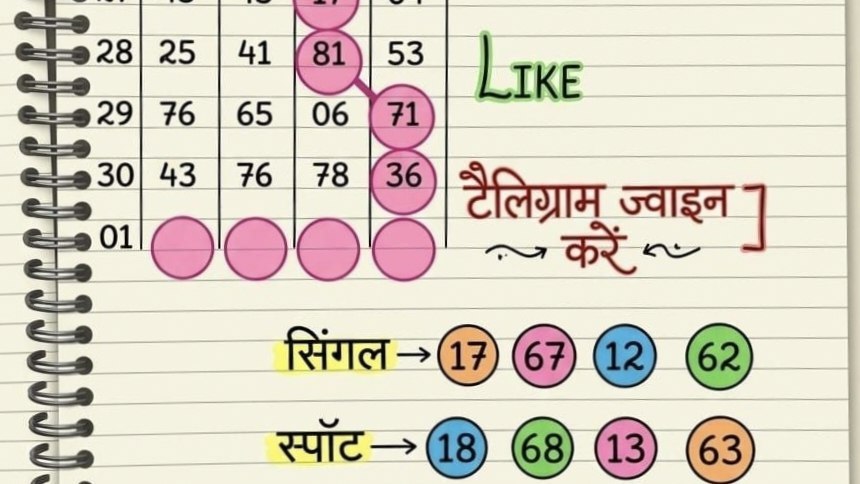 28 25 41 81 53
LIKE
29 76 65 06 71
30 43 76 78 36
टैलिग्राम ज्वाइन
करें
01
सिंगल → 17 67 12 62
स्पॉट → 18 68 13 63